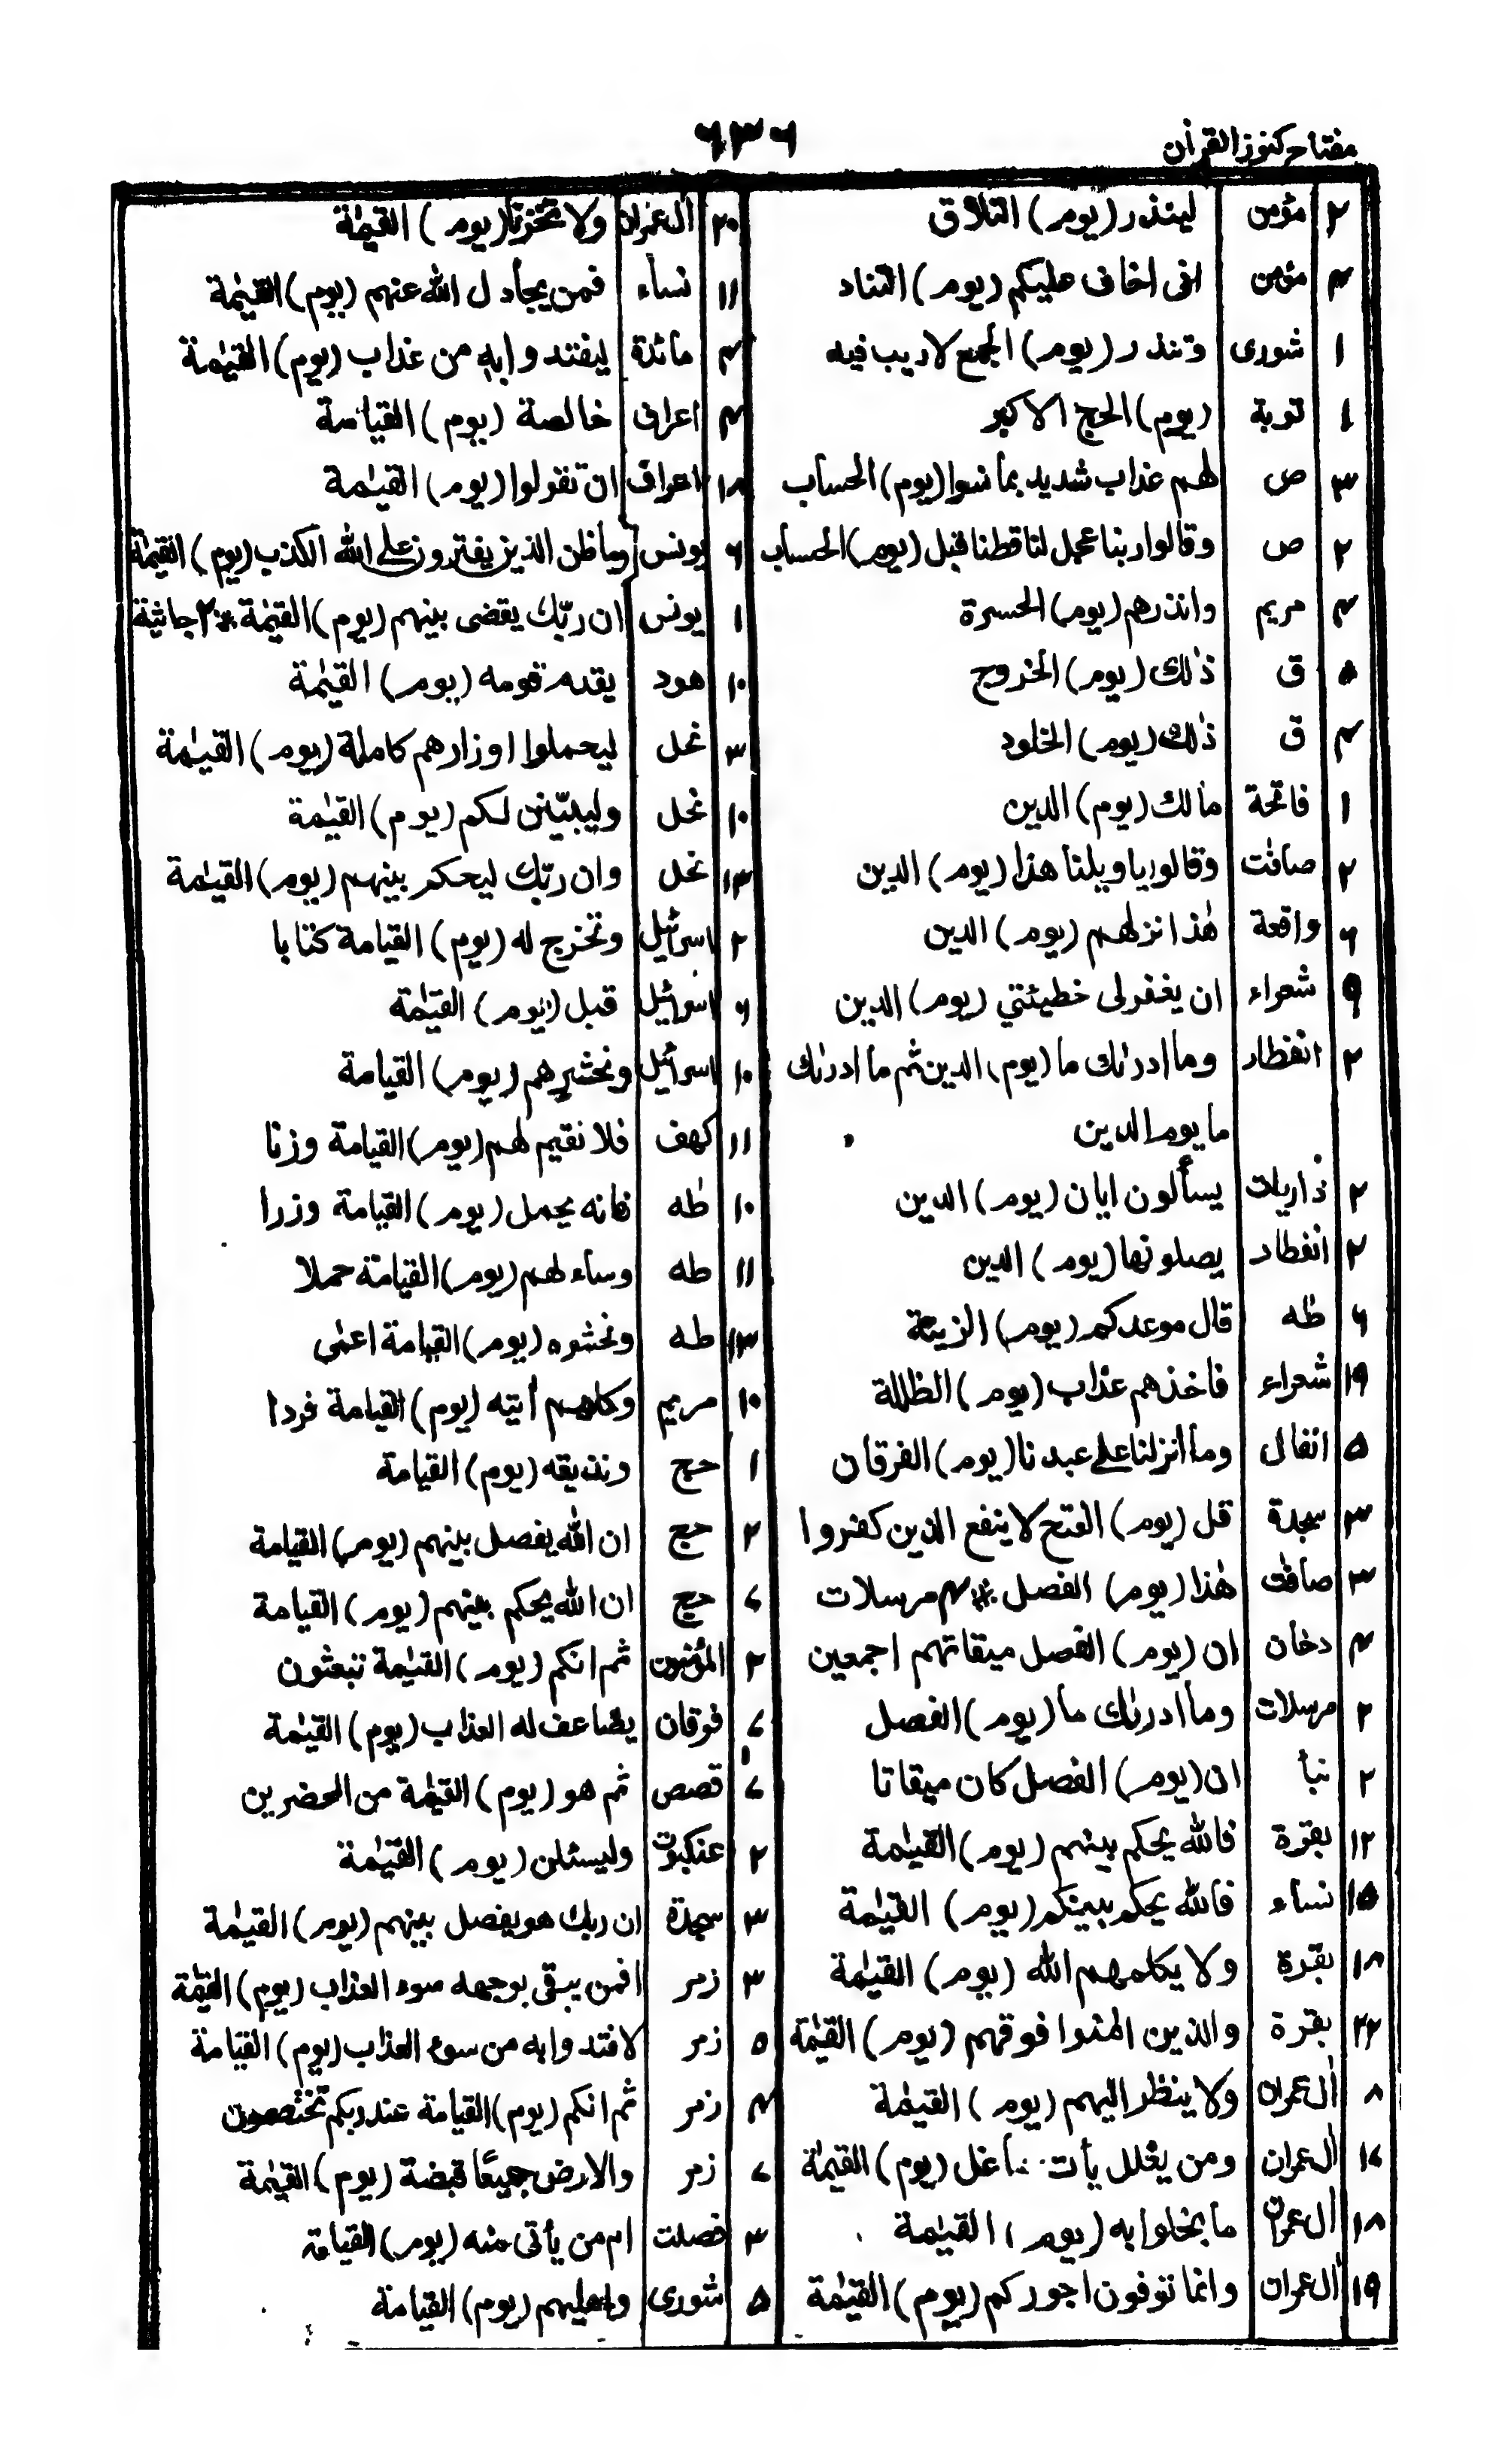 مفتاح كنوز القرأن
٦٣٦
٢ مؤمن لينذر (يوم) التلاق
٤ مؤمن انى اخاف عليكم (يوم) التناد
١ شورى وتنذر (يوم) الجمع لاريب فيه
١ توبة (يوم) الحج الاكبر
٣ ص لهم عذاب شديد بما نسوا (يوم) الحساب
٢ ص وقالوا ربنا عجل لنا قطنا قبل (يوم) الحساب
٤ مريم وانذرهم (يوم) الحسرة
٥ ق ذٰلك (يوم) الخروج
٤ ق ذٰلك (يوم) الخلود
١ فاتحة مالك (يوم) الدين
٢ صافٰت وقالوا ياويلنا هذا (يوم) الدين
٦ واقعة هٰذا نزلهم (يوم) الدين
٩ شعراء ان يغفرلى خطيئتي (يوم) الدين
٢ انفطار وما ادرٰىك ما (يوم) الدين ثم ما ادرٰىك
ما يوم الدين
٢ ذاريات يسألون ايان (يوم) الدين
٢ انفطار يصلونها (يوم) الدين
٦ طٰه قال موعدكم (يوم) الزينة
١٩ شعراء فاخذهم عذاب (يوم) الظللة
٥ انفال وما انزلنا على عبدنا (يوم) الفرقان
٣ سجدة قل (يوم) الفتح لاينفع الذين كفروا
٣ صافٰت هٰذا (يوم) الفصل * ٤ مرسلات
٤ دخان ان (يوم) الفصل ميقاتهم اجمعين
٢ مرسلات وما ادرٰىك ما (يوم) الفصل
٢ نبأ ان (يوم) الفصل كان ميقاتا
١٢ بقرة فالله يحكم بينهم (يوم) القيٰمة
١٥ نساء فالله يحكم بينكم (يوم) القيٰمة
١٨ بقرة ولا يكلمهم الله (يوم) القيٰمة
٢٢ بقرة والذين اٰمنوا فوقهم (يوم) القيٰمة
٨ اٰل عمران ولا ينظر اليهم (يوم) القيٰمة
١٧ اٰل عمران ومن يغلل يأت بما غل (يوم) القيٰمة
١٨ اٰل عمران ما بخلوا به (يوم) القيٰمة
١٩ اٰل عمران وانما توفون اجوركم (يوم) القيٰمة
٢٠ اٰل عمران ولا تخزنا (يوم) القيٰمة
١١ نساء فمن يجادل الله عنهم (يوم) القيٰمة
٤ مائدة ليفتدوا به من عذاب (يوم) القيٰمة
٤ اعراف خالصة (يوم) القيامة
١٨ اعراف ان تقولوا (يوم) القيٰمة
٦ يونس وما ظن الذين يفترون على الله الكذب (يوم) القيٰمة
١ يونس ان ربّك يقضى بينهم (يوم) القيٰمة * ٢ جاثية
١٠ هود يقدم قومه (يوم) القيٰمة
٣ نحل ليحملوا اوزارهم كاملة (يوم) القيٰمة
١٠ نحل وليبيّنن لكم (يوم) القيٰمة
١٣ نحل وان ربّك ليحكم بينهم (يوم) القيٰمة
٢ اسرائيل ونخرج له (يوم) القيامة كتابا
٦ اسرائيل قبل (يوم) القيٰمة
١٠ اسرائيل ونحشرهم (يوم) القيامة
١١ كهف فلا نقيم لهم (يوم) القيامة وزنا
١٠ طٰه فانه يحمل (يوم) القيامة وزرا
١١ طه وساء لهم (يوم) القيامة حملا
١٣ طه ونحشره (يوم) القيامة اعمٰى
١٠ مريم وكلهم أتيه (يوم) القيامة فردا
١ حج ونذيقه (يوم) القيامة
٢ حج ان الله يفصل بينهم (يوم) القيامة
٧ حج ان الله يحكم بينهم (يوم) القيامة
٢ المؤمنون ثم انكم (يوم) القيٰمة تبعثون
٧ فرقان يضاعف له العذاب (يوم) القيٰمة
٧ قصص ثم هو (يوم) القيٰمة من المحضرين
٢ عنكبوت وليسئلن (يوم) القيٰمة
٣ سجدة ان ربك هو يفصل بينهم (يوم) القيٰمة
٣ زمر افمن يتقى بوجهه سوء العذاب (يوم) القيٰمة
٥ زمر لافتدوا به من سوء العذاب (يوم) القيامة
٤ زمر ثم انكم (يوم) القيامة عند ربكم تختصمون
٧ زمر والارض جميعًا قبضته (يوم) القيٰمة
٣ فصلت ام من يأتى منه (يوم) القيامة
٥ شورى واهليهم (يوم) القيامة